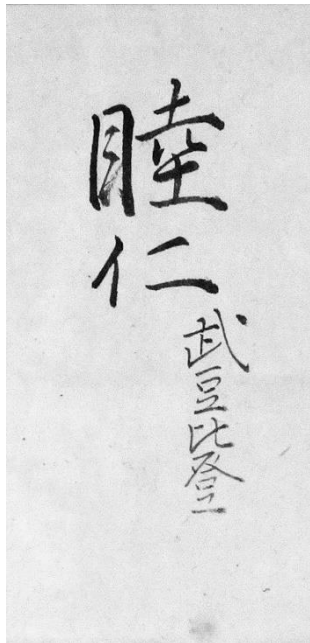 睦仁
武豆比登